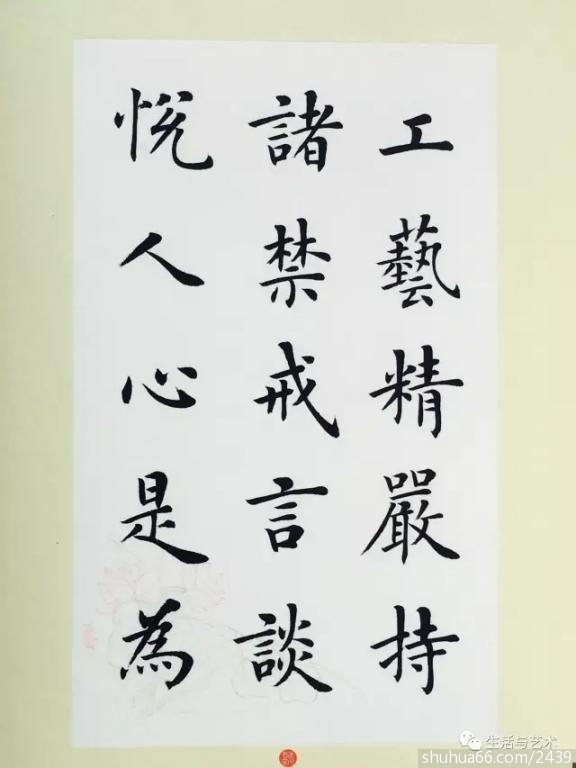 工藝精嚴持
諸禁戒言談
悅人心是為
生活与艺术
shuhua66.com/2439